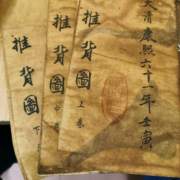 大清康熙六十一年壬寅
推背圖
上卷
推背圖
中卷
推背圖
下